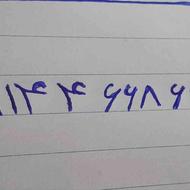 ۱۱۴۴ ۶۶۸۶